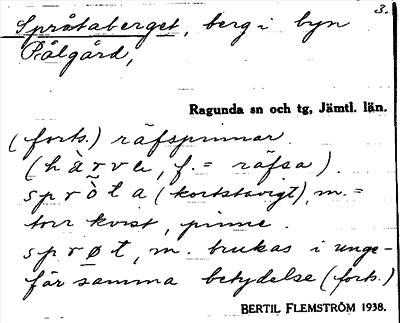 3.
Språtaberget, berg i byn
Pålgård,
Ragunda sn och tg, Jämtl. län.
(forts.) räfspinnar.
(hàrve, f. = räfsa).
spròta (kortstavigt), m. =
torr kvist, pinne.
sprøt, m. brukas i unge-
fär samma betydelse (forts.)
BERTIL FLEMSTRÖM 1938.